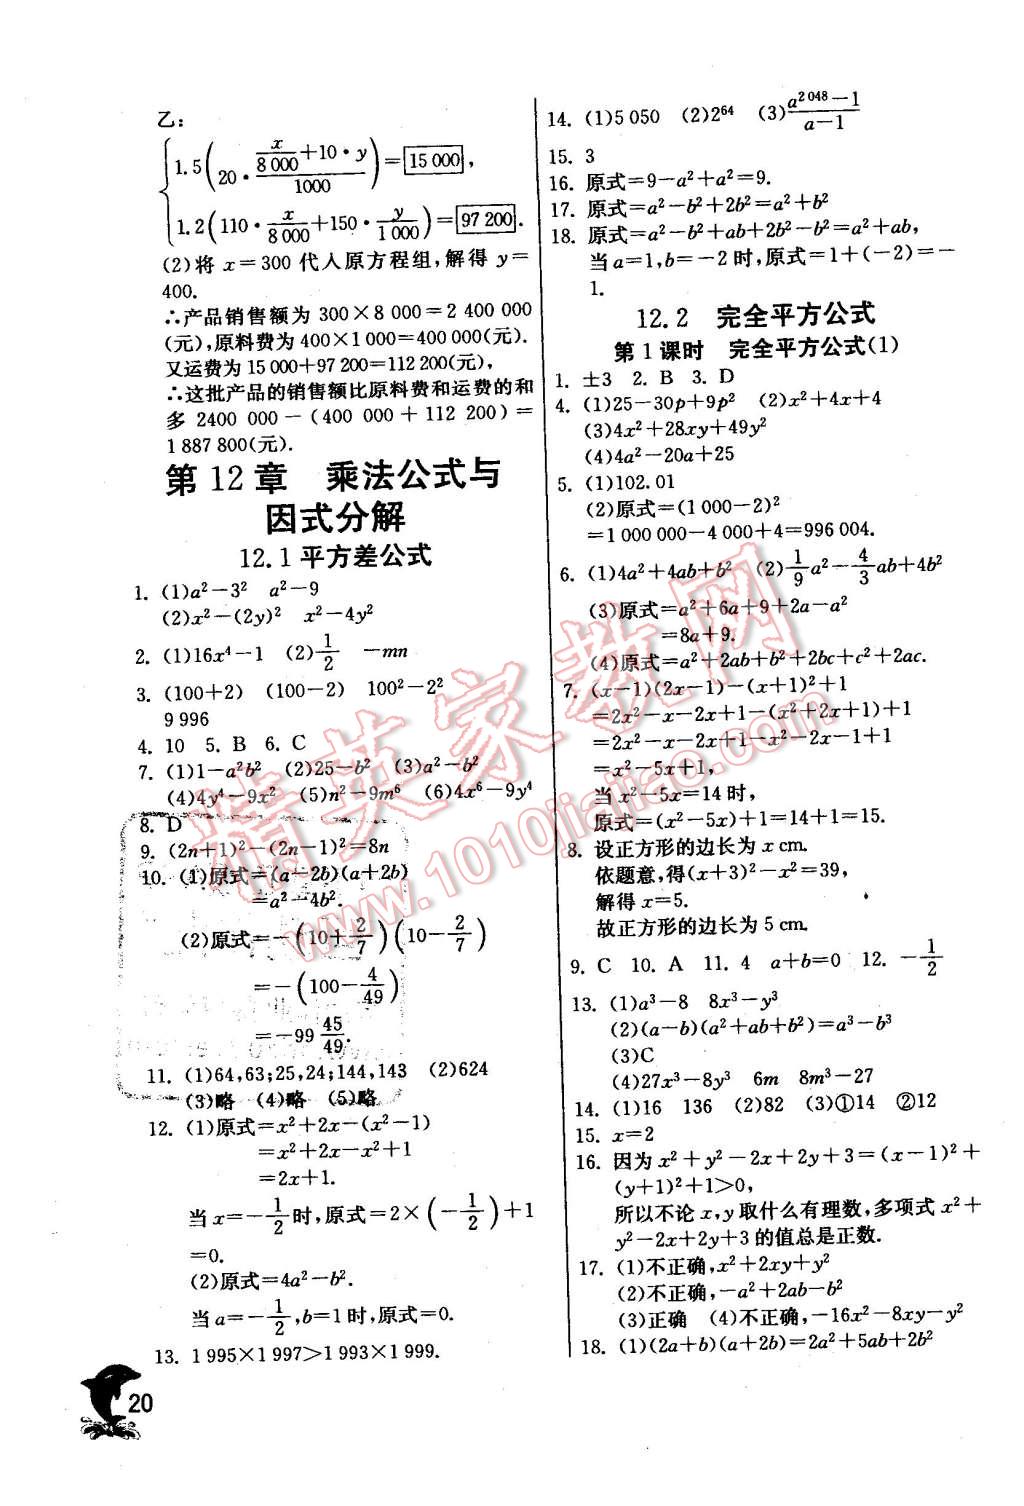 乙:
1.5(20·x/8 000+10·y/1000)=15 000,
1.2(110·x/8 000+150·y/1 000)=97 200.
(2)将 x=300 代人原方程组,解得 y=
400.
∴产品销售额为 300×8 000=2 400 000
(元),原料费为 400×1 000=400 000(元).
又运费为 15 000+97 200=112 200(元),
∴这批产品的销售额比原料费和运费的和
多 2400 000-(400 000+112 200)=
1 887 800(元).
第 12 章 乘法公式与
因式分解
12.1 平方差公式
1. (1)a²-3² a²-9
(2)x²-(2y)² x²-4y²
2. (1)16x⁴-1 (2)1/2 -mn
3. (100+2) (100-2) 100²-2²
9 996
4. 10 5. B 6. C
7. (1)1-a²b² (2)25-b² (3)a²-b²
(4)4y⁴-9x² (5)n²-9m⁶ (6)4x⁶-9y⁴
8. D
9. (2n+1)²-(2n-1)²=8n
10. (1)原式=(a-2b)(a+2b)
=a²-4b².
(2)原式=-(10+2/7)(10-2/7)
=-(100-4/49)
=-99 45/49.
11. (1)64,63;25,24;144,143 (2)624
(3)略 (4)略 (5)略
12. (1)原式=x²+2x-(x²-1)
=x²+2x-x²+1
=2x+1.
当 x=-1/2时,原式=2×(-1/2)+1
=0.
(2)原式=4a²-b².
当 a=-1/2,b=1 时,原式=0.
13. 1 995×1 997>1 993×1 999.
20
14. (1)5 050 (2)2⁶⁴ (3)a²⁰⁴⁸-1/a-1
15. 3
16. 原式=9-a²+a²=9.
17. 原式=a²-b²+2b²=a²+b²
18. 原式=a²-b²+ab+2b²-b²=a²+ab,
当 a=1,b=-2 时,原式=1+(-2)=-
1.
12.2 完全平方公式
第 1 课时 完全平方公式(1)
1. ±3 2. B 3. D
4. (1)25-30p+9p² (2)x²+4x+4
(3)4x²+28xy+49y²
(4)4a²-20a+25
5. (1)102.01
(2)原式=(1 000-2)²
=1 000 000-4 000+4=996 004.
6. (1)4a²+4ab+b² (2)1/9a²-4/3ab+4b²
(3)原式=a²+6a+9+2a-a²
=8a+9.
(4)原式=a²+2ab+b²+2bc+c²+2ac.
7. (x-1)(2x-1)-(x+1)²+1
=2x²-x-2x+1-(x²+2x+1)+1
=2x²-x-2x+1-x²-2x-1+1
=x²-5x+1,
当 x²-5x=14 时,
原式=(x²-5x)+1=14+1=15.
8. 设正方形的边长为 x cm.
依题意,得(x+3)²-x²=39,
解得 x=5.
故正方形的边长为 5 cm.
9. C 10. A 11. 4 a+b=0 12. -1/2
13. (1)a³-8 8x³-y³
(2)(a-b)(a²+ab+b²)=a³-b³
(3)C
(4)27x³-8y³ 6m 8m³-27
14. (1)16 136 (2)82 (3)①14 ②12
15. x=2
16. 因为 x²+y²-2x+2y+3=(x-1)²+
(y+1)²+1>0,
所以不论 x,y 取什么有理数,多项式 x²+
y²-2x+2y+3 的值总是正数.
17. (1)不正确,x²+2xy+y²
(2)不正确,-a²+2ab-b²
(3)正确 (4)不正确,-16x²-8xy-y²
18. (1)(2a+b)(a+2b)=2a²+5ab+2b²
精英家教网
www.1010jiajiao.com